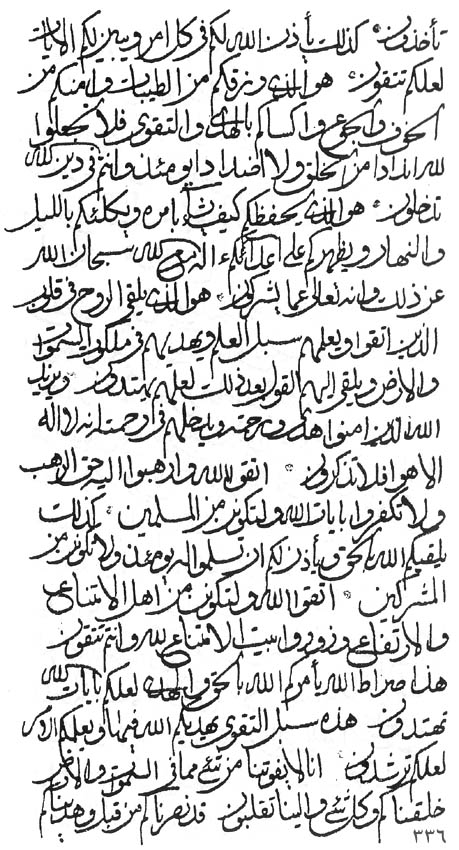 تأخذون * كذلك يأذن الله لكم في كل امر ويبين لكم الايات
لعلكم تتقون * هو الذي ورزقكم من الطيبات وامنكم من
الخوف والجوع واكساكم بالهدى والتقوى فلا تجعلوا
لله اندادا من الخلق ولا اضدادا يومئذ وانتم في دين الله
تدخلون * هو الذي يحفظكم كيف يشاء بامره ويكلئكم بالليل
والنهار ويظهركم على اعدائكم ءاله مع الله سبحان الله
عن ذلك وانه تعالى عما يشركون * هو الذي يلقي الروح في قلوب
الذين اتقوا ويعلمهم سبل العلم ويهديهم في ملكوت السموات
والارض ويلقي اليهم القول بعد ذلك لعلهم يهتدون * ويزيد
الله الذين امنوا هدى ورحمة ويدخلهم في رحمته انه لا اله
الا هو افلا تذكرون * اتقوا الله وارهبوا اليه حق الارهب
ولا تكفروا بايات الله ولتكونن من المسلمين * كذلك
يلقيكم الله بالحق ويأذن لكم ان تسلموا له يومئذ ولا تكونن من
المشركين * اتقوا الله ولتكونن من اهل الامتناع
والارتفاع وزوروا بيت الامتناع لله وانتم تتقون
هذا صراط الله يأمركم الله بالحق والهدى لعلكم بايات الله
تهتدون * هذه سبل التقوى يهديكم الله فيها ويعلمكم الامر
لعلكم ترشدون * انا لا يفوتنا من شيء مما في السموات والارض
خلقناكم وكل شيء والينا تقلبون * قد نصرناكم من قبل وهديناكم
٣٣٦